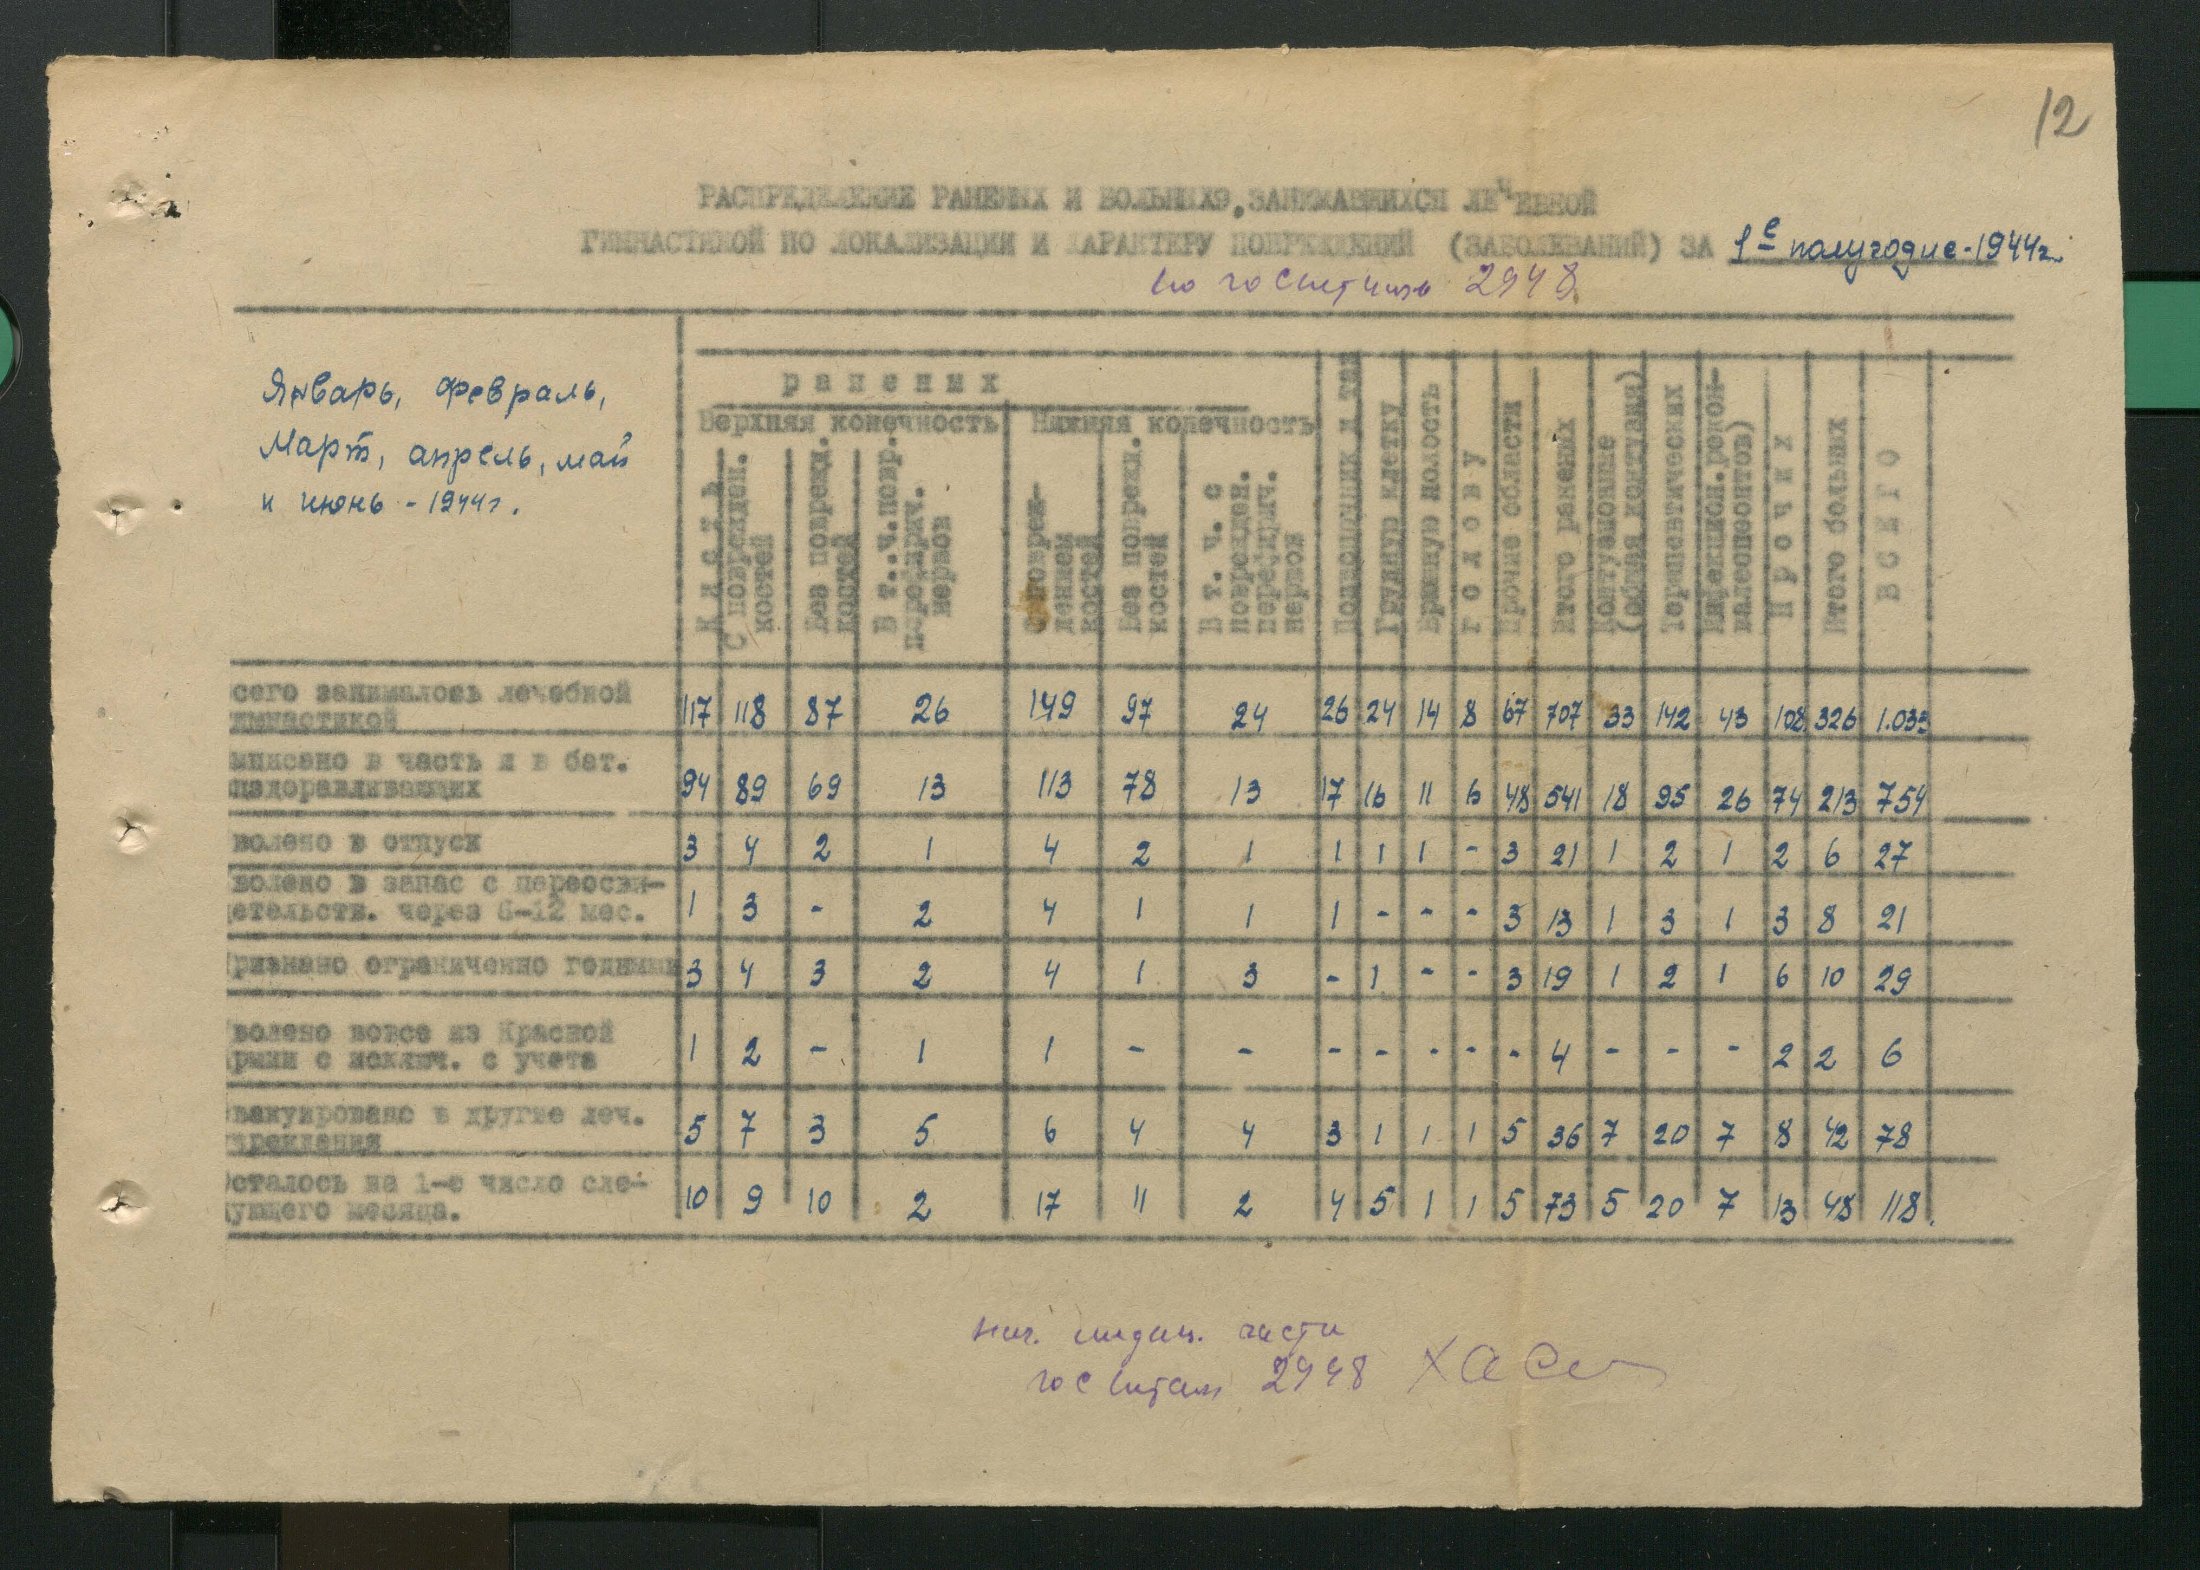 12
РАСПРЕДЕЛЕНИЕ РАНЕНЫХ И БОЛЬНЫХЭ, ЗАНИМАВШИХСЯ ЛЕЧЕБНОЙ
ГИМНАСТИКОЙ ПО ЛОКАЛИЗАЦИИ И ХАРАКТЕРУ ПОВРЕЖДЕНИЙ (ЗАБОЛЕВАНИЙ) ЗА 1е полугодие-1944г.
по госпиталю 2948
Январь, февраль,
Март, апрель, май
и июнь - 1944г.
раненых
Верхняя конечность Нижняя конечность
Кисть
С поврежден. костей
Без поврежд. костей
В т..ч.повр. периферич. нервов
С поврежлением костей
Без поврежд. костей
В т. ч. с поврежден. перефирич. нервов
Позвоночник и таз
Грудную клетку
Брюшную полость
голову
Прочие области
Итого раненых
Контуженные (общая контузия)
Терапевтических
Инфекцион.рекон-валесцентов)
Прочих
Итого больных
ВСЕГО
сего занималось лечебной
имнастикой 117 118 87 26 149 97 24 26 24 14 8 67 707 33 142 43 108 326 1.033
ыписано в часть и в бат.
ыздоравливающих 94 89 69 13 113 78 13 17 16 11 6 48 541 18 95 26 74 213 754
волено в отпуск 3 4 2 1 4 2 1 1 1 1 - 3 21 1 2 1 2 6 27
волено в запас с переосви-
етельств. через 6-12 мес. 1 3 - 2 4 1 1 1 - - - 3 13 1 3 1 3 8 21
Признано ограниченно годными 3 4 3 2 4 1 3 - 1 - - 3 19 1 2 1 6 10 29
волено вовсе из Красной
рмии с исключ. с учета 1 2 - 1 1 - - - - - - - 4 - - - 2 2 6
вакуировано в другие леч.
чреждания 5 7 3 5 6 4 4 3 1 1 1 5 36 7 20 7 8 42 78
Осталось на 1-е число сле-
дующего месяца. 10 9 10 2 17 11 2 4 5 1 1 5 73 5 20 7 13 48 118.
нач. медиц. части
госпиталя 2948